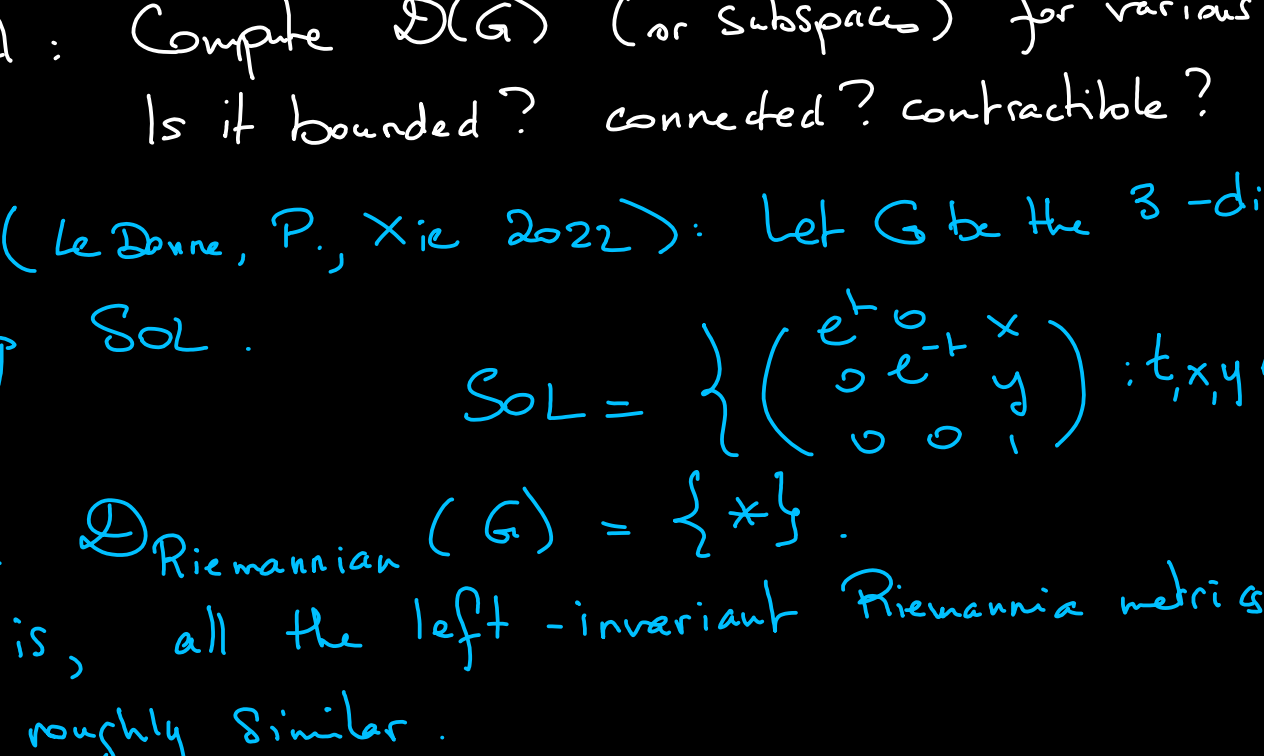 d : Compute 𝒟(G) (or subspaces) for various
Is it bounded? connected? contractible?
(Le Donne, P., Xie 2022): Let G be the 3-di
SOL.
SOL = { ( e^t 0 x
0 e^-t y
0 0 1 ) : t, x, y
𝒟_Riemannian (G) = {*}.
is, all the left-invariant Riemannia metrics
roughly Similar.